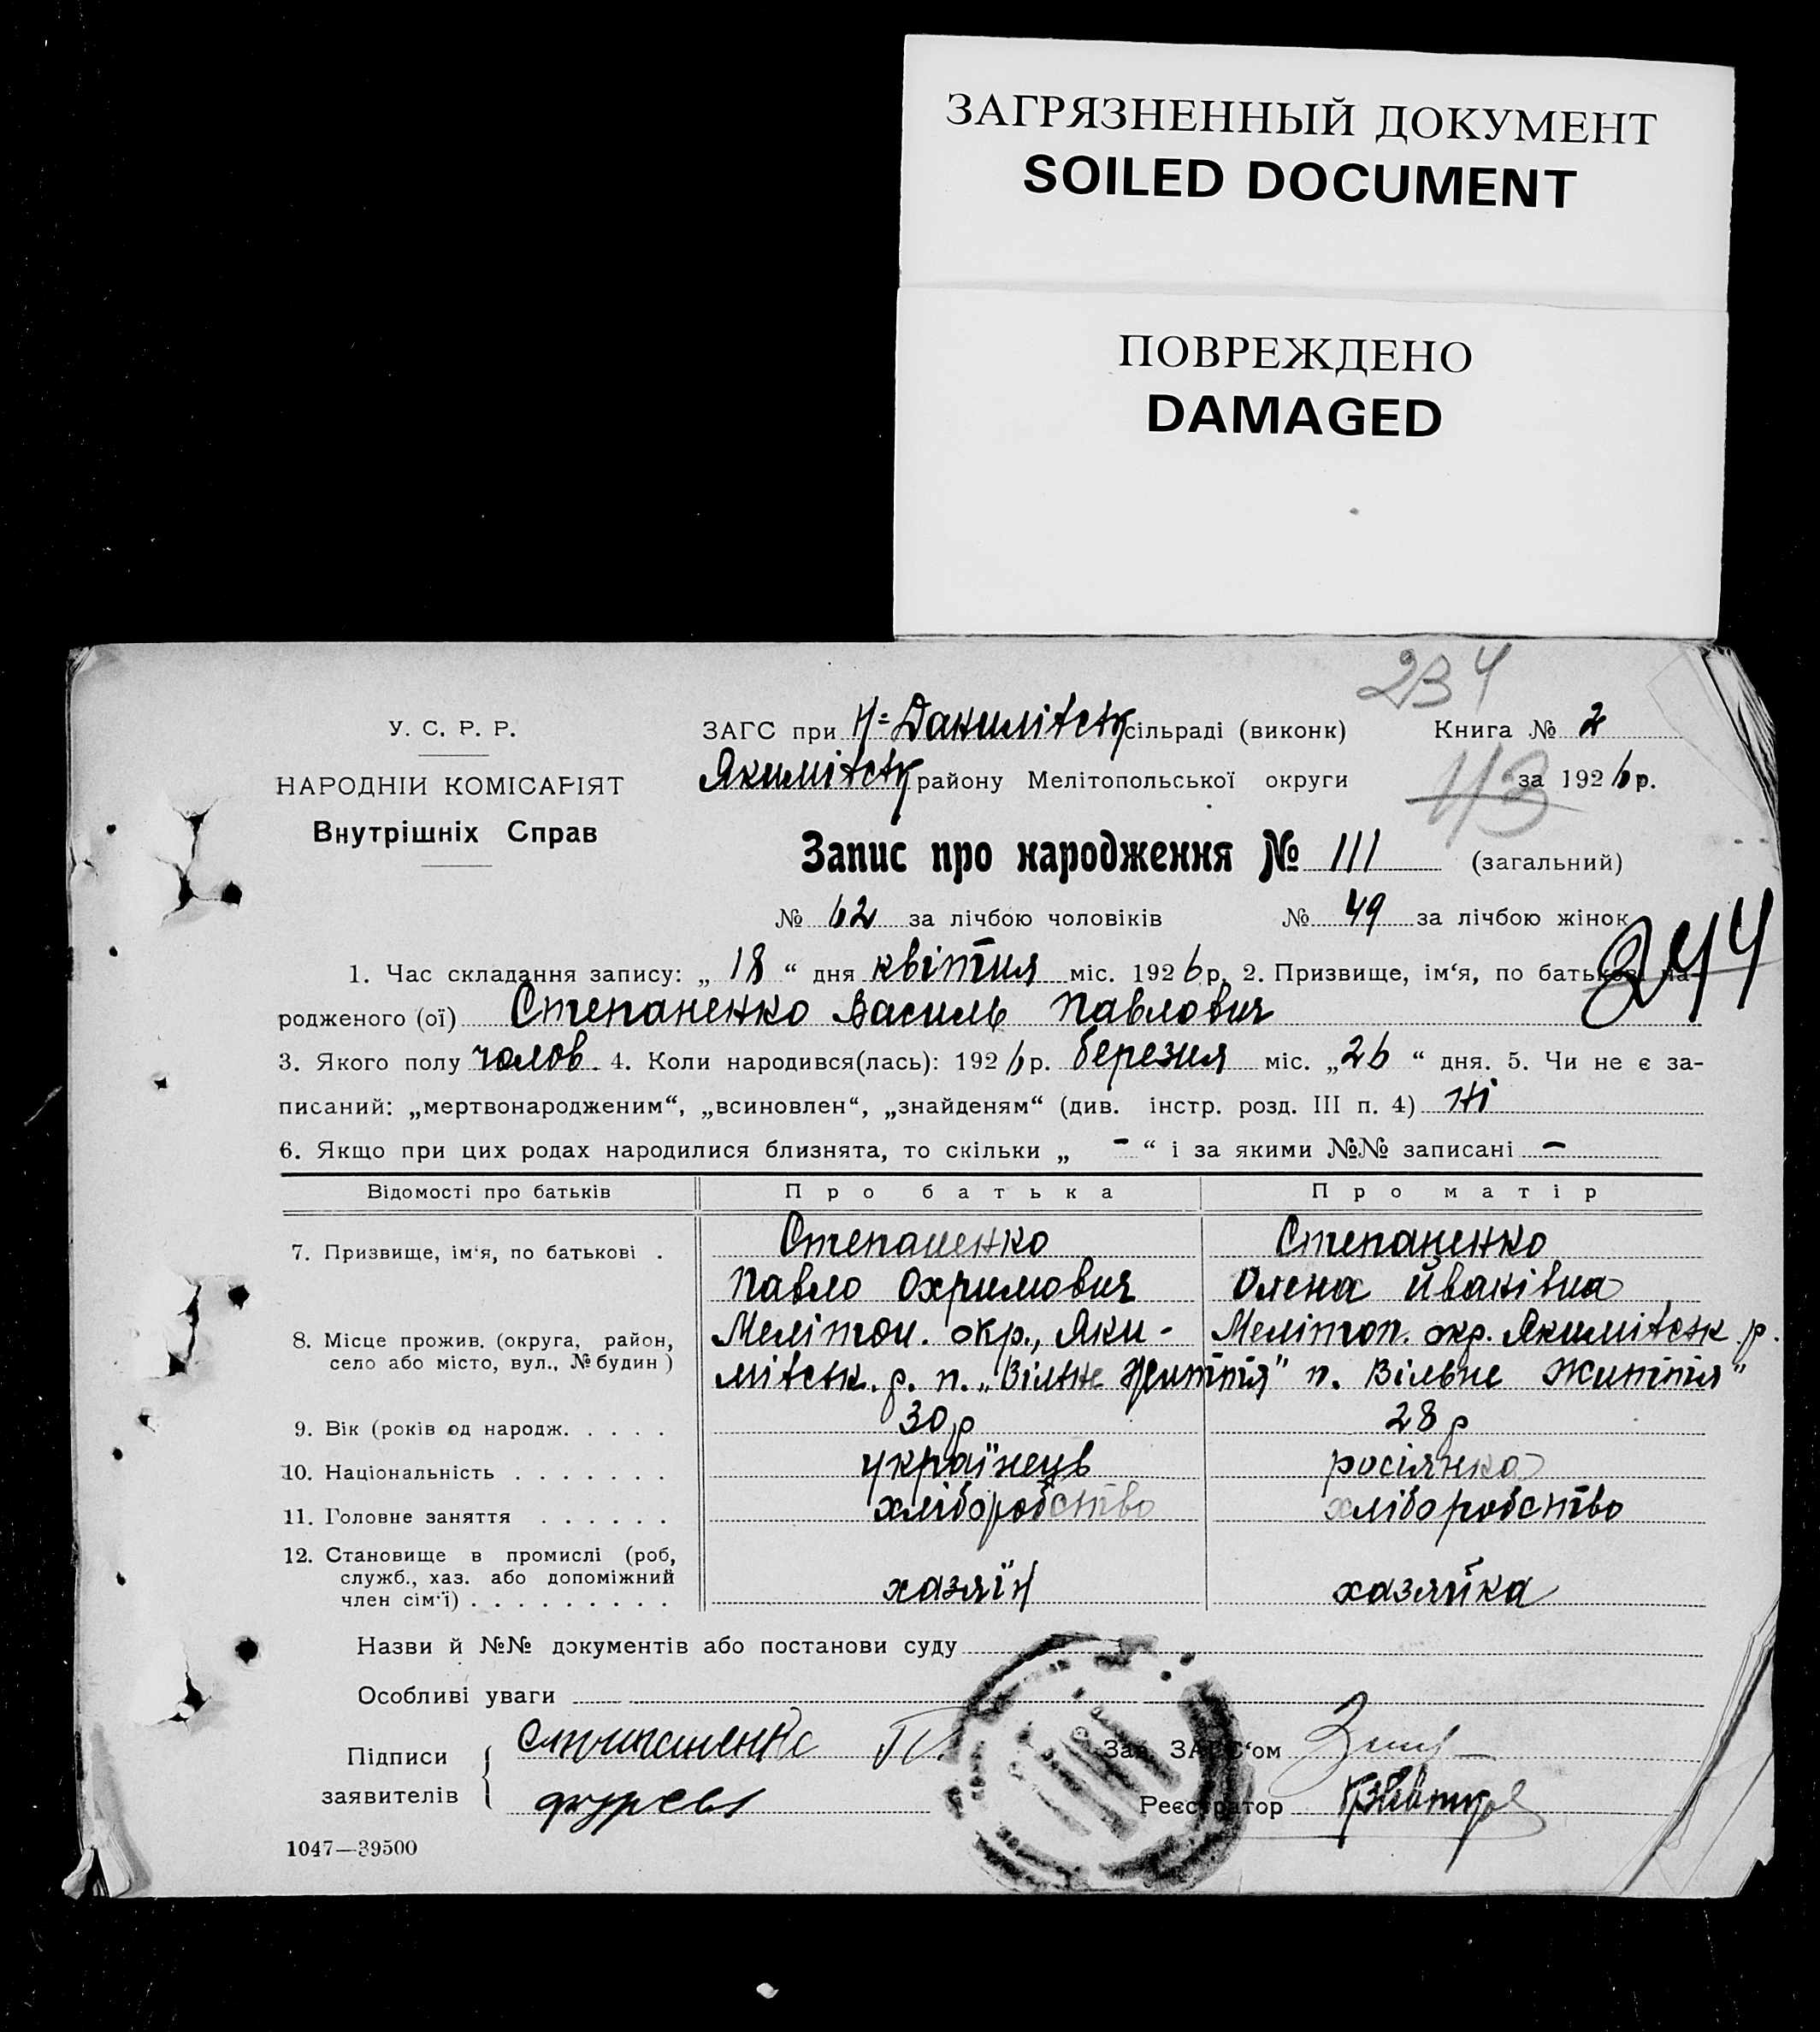 ЗАГРЯЗНЕННЫЙ ДОКУМЕНТ
SOILED DOCUMENT
ПОВРЕЖДЕНО
DAMAGED
234
У. С. Р. Р.
НАРОДНІЙ КОМІСАРІЯТ
Внутрішніх Справ
ЗАГС при сільраді (виконк) Книга № 2
Якимітськ району Мелітопольської округи за 1926 р.
113
Запис про народження № 111 (загальний)
№ 62 за лічбою чоловіків № 49 за лічбою жінок
244
1. Час складання запису: „ 18 “ дня квітня міс. 1926 р. 2. Призвище, ім‘я, по батькові на-
родженого (ої) Степаненко Василь Павлович
3. Якого полу чолов. 4. Коли народився(лась): 1926 р. березня міс. „26 “ дня. 5. Чи не є за-
писаний: „мертвонародженим“, „всиновлен“, „знайденям“ (див. інстр. розд. III п. 4) Ні
6. Якщо при цих родах народилися близнята, то скільки „ - “ і за якими №№ записані -
Відомості про батьків Про батька Про матір
7. Призвище, ім‘я, по батькові . Степаненко Степаненко
Павло Охримович Олена Иванівна
8. Місце прожив. (округа, район, село або місто, вул., № будин) Мелітоп. окр., Яки- Мелітоп. окр. Якимітськ р.
мітськ. р. п. „Вільне Життя" п. Вільне Життя"
9. Вік (років од народж. . . . . 30 р 28 р
10. Національність . . . . . . . українець росіянка
11. Головне заняття . . . . . . хліборобство хліборобство
12. Становище в промислі (роб,
служб., хаз. або допоміжний
член сім‘ї) . . . . . . . . . хазяїн хазяйка
Назви й №№ документів або постанови суду
Особливі уваги
Підписи заявителів
Степаненко П.
Зав. ЗАГС‘ом
Реєстратор
1047—39500